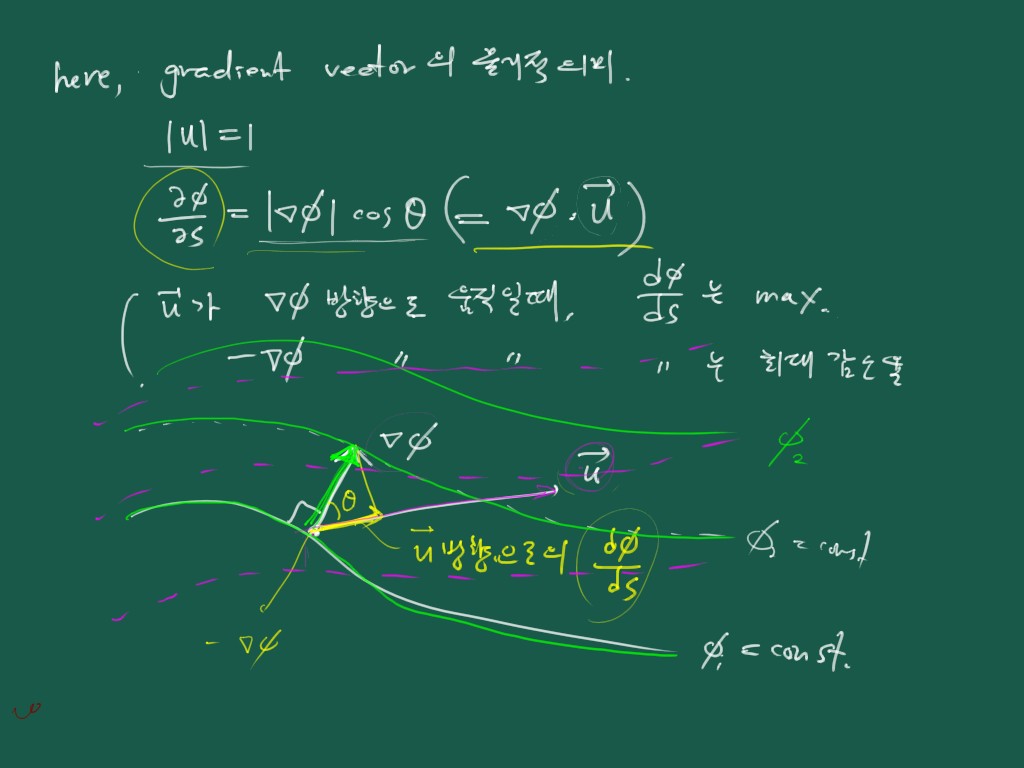 here, gradient vector의 물리적 의미.
|u| = 1
∂φ/∂s = |∇φ| cos θ (= ∇φ · u⃗)
u⃗가 ∇φ 방향으로 움직일때, dφ/ds 는 max.
-∇φ 〃 〃 〃 는 최대 감소율
∇φ
φ₂
u⃗
θ
u⃗ 방향으로의 dφ/ds
φ = const
-∇φ
φ₁ = const.